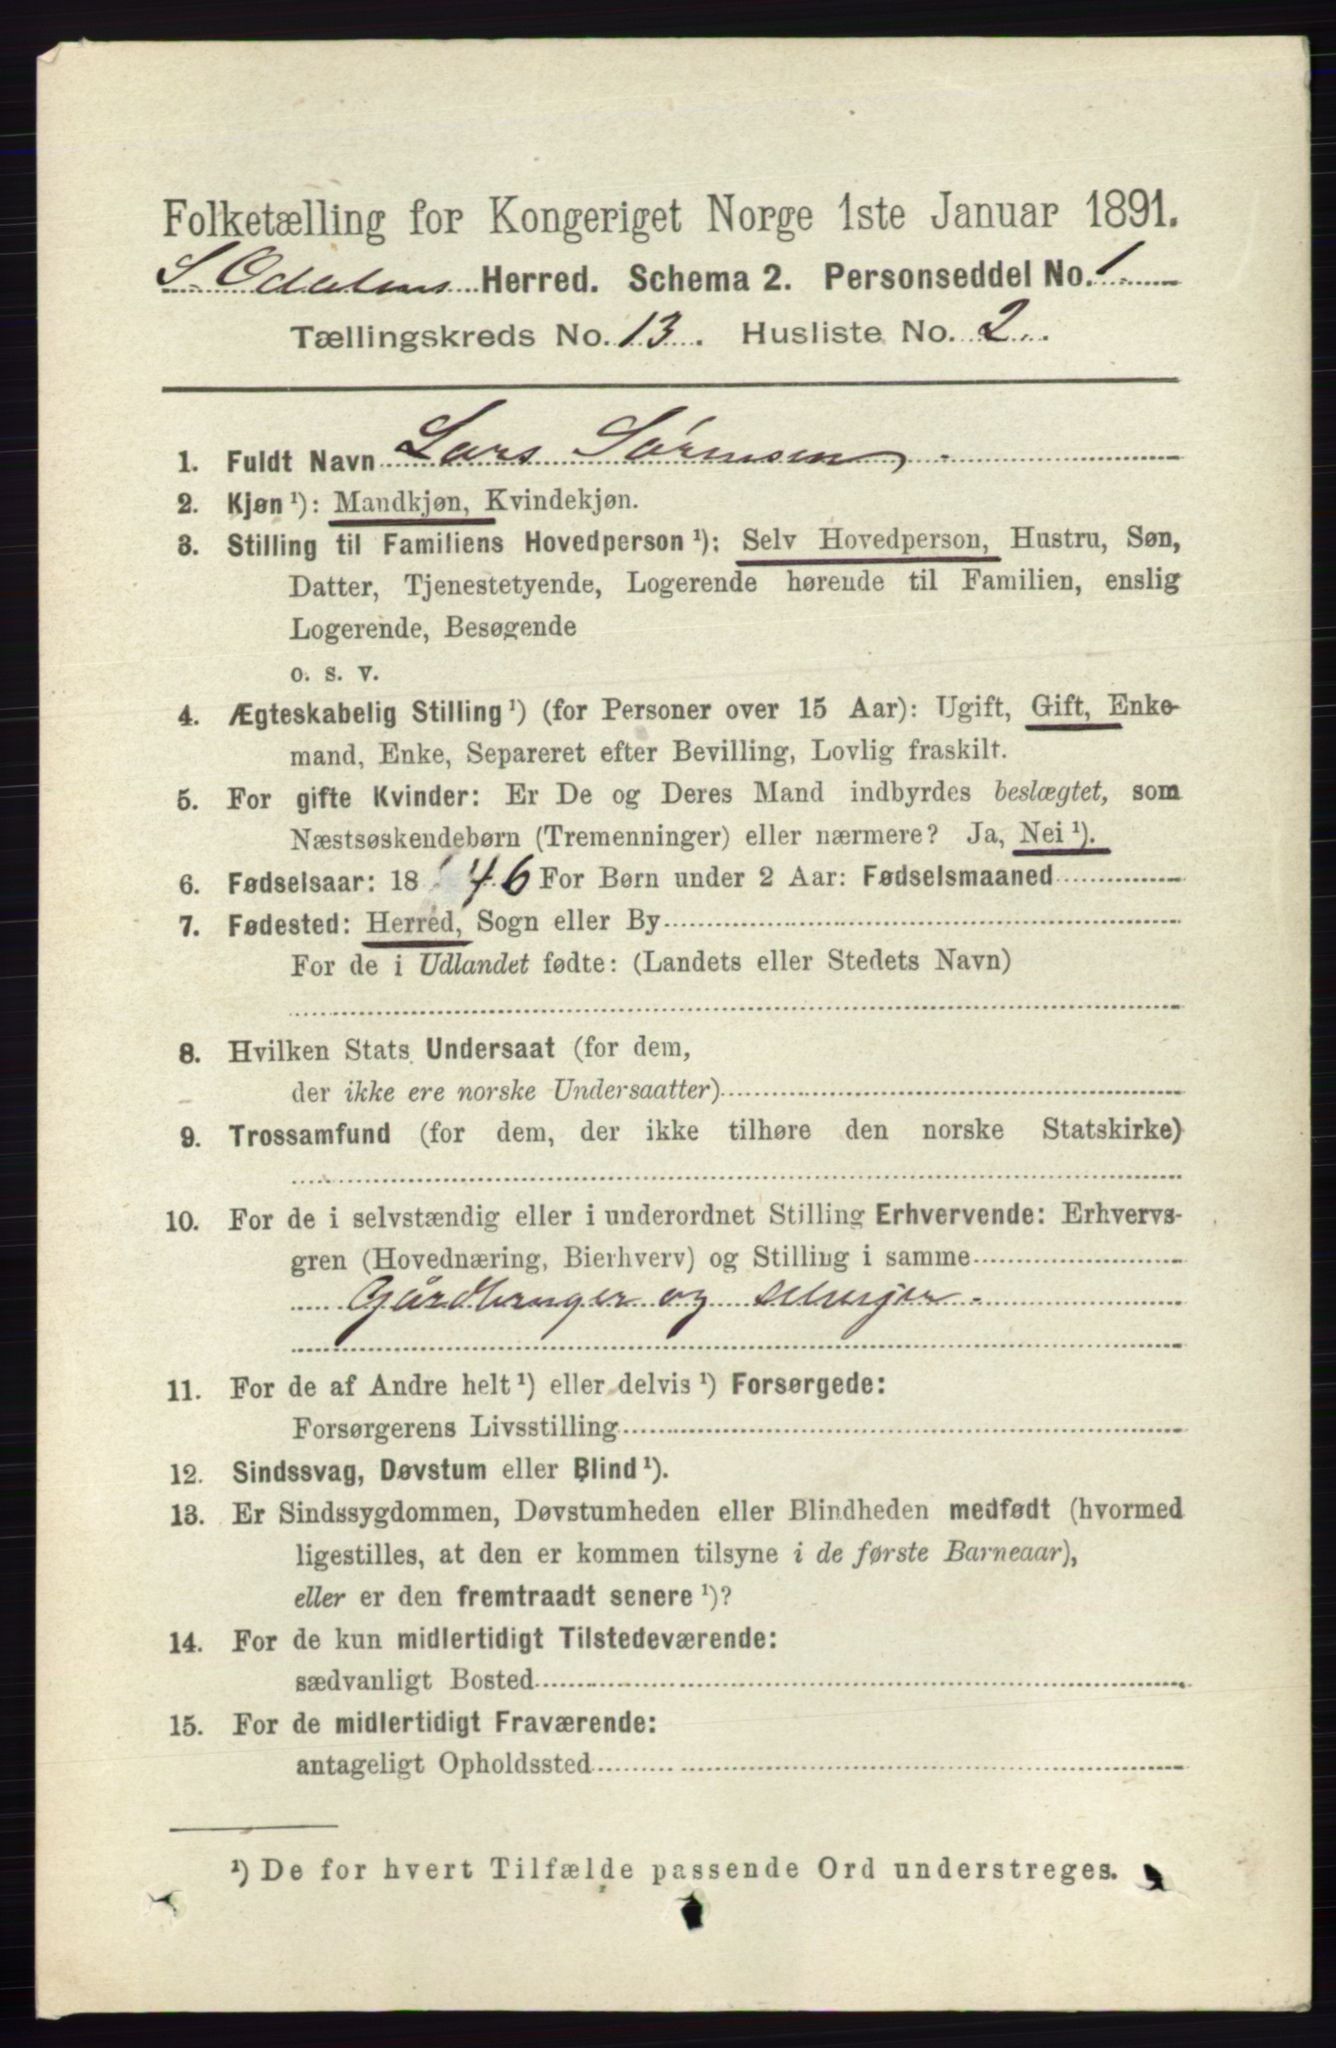 Folketælling for Kongeriget Norge 1ste Januar 1891.
S. Odalens Herred. Schema 2. Personseddel No. 1
Tællingskreds No. 13. Husliste No. 2
1. Fuldt Navn Lars Sørensen
2. Kjøn ¹): Mandkjøn, Kvindekjøn.
3. Stilling til Familiens Hovedperson ¹): Selv Hovedperson, Hustru, Søn,
Datter, Tjenestetyende, Logerende hørende til Familien, enslig
Logerende, Besøgende
o. s. v.
4. Ægteskabelig Stilling ¹) (for Personer over 15 Aar): Ugift, Gift, Enke-
mand, Enke, Separeret efter Bevilling, Lovlig fraskilt.
5. For gifte Kvinder: Er De og Deres Mand indbyrdes beslægtet, som
Næstsøskendebørn (Tremenninger) eller nærmere? Ja, Nei ¹).
6. Fødselsaar: 1846 For Børn under 2 Aar: Fødselsmaaned
7. Fødested: Herred, Sogn eller By
For de i Udlandet fødte: (Landets eller Stedets Navn)
8. Hvilken Stats Undersaat (for dem,
der ikke ere norske Undersaatter)
9. Trossamfund (for dem, der ikke tilhøre den norske Statskirke)
10. For de i selvstændig eller i underordnet Stilling Erhvervende: Erhvervs-
gren (Hovednæring, Bierhverv) og Stilling i samme
Gårdbruger og selvejer
11. For de af Andre helt ¹) eller delvis ¹) Forsørgede:
Forsørgerens Livsstilling
12. Sindssvag, Døvstum eller Blind ¹).
13. Er Sindssygdommen, Døvstumheden eller Blindheden medfødt (hvormed
ligestilles, at den er kommen tilsyne i de første Barneaar),
eller er den fremtraadt senere ¹)?
14. For de kun midlertidigt Tilstedeværende:
sædvanligt Bosted
15. For de midlertidigt Fraværende:
antageligt Opholdssted
¹) De for hvert Tilfælde passende Ord understreges.